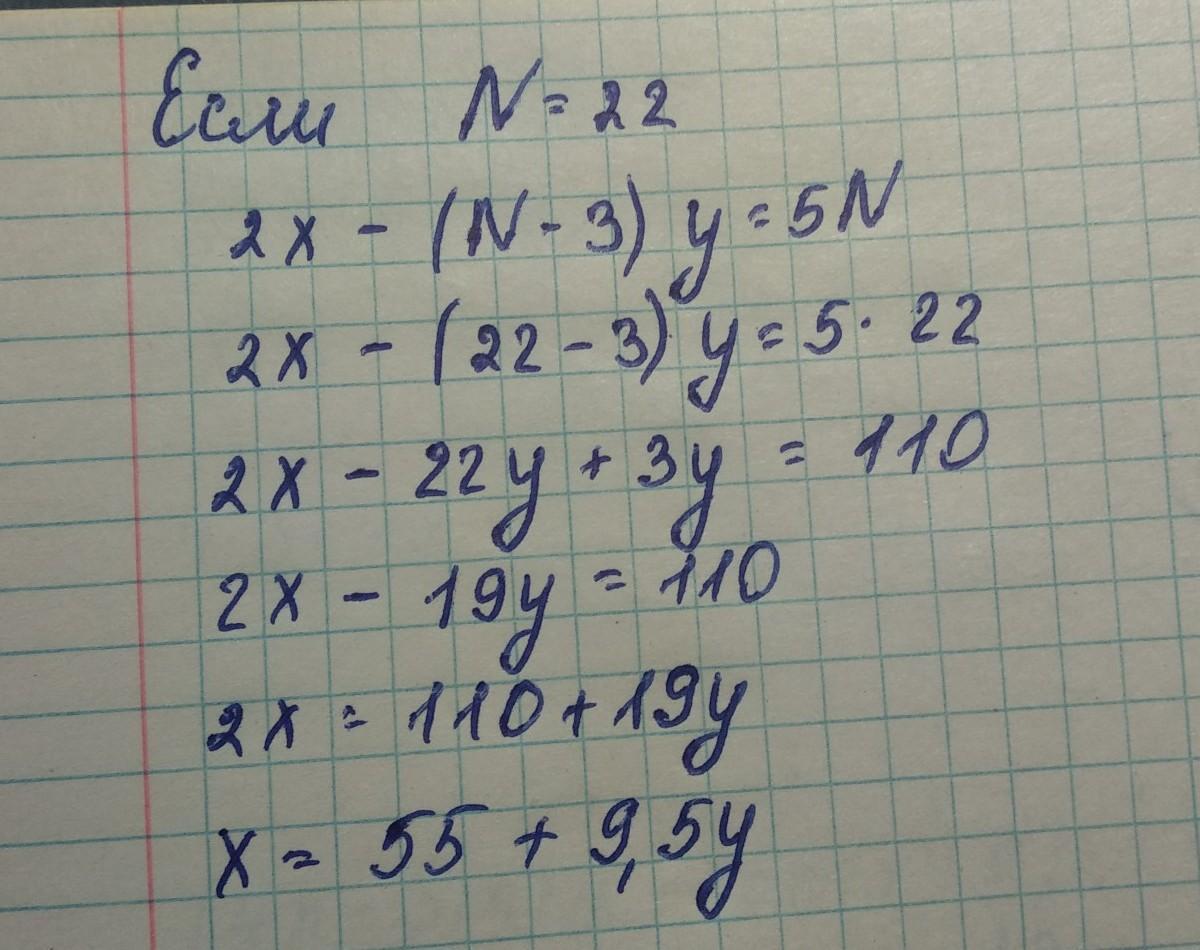 Если N = 22
2x - (N - 3) y = 5N
2x - (22 - 3) y = 5 · 22
2x - 22y + 3y = 110
2x - 19y = 110
2x = 110 + 19y
x = 55 + 9,5y